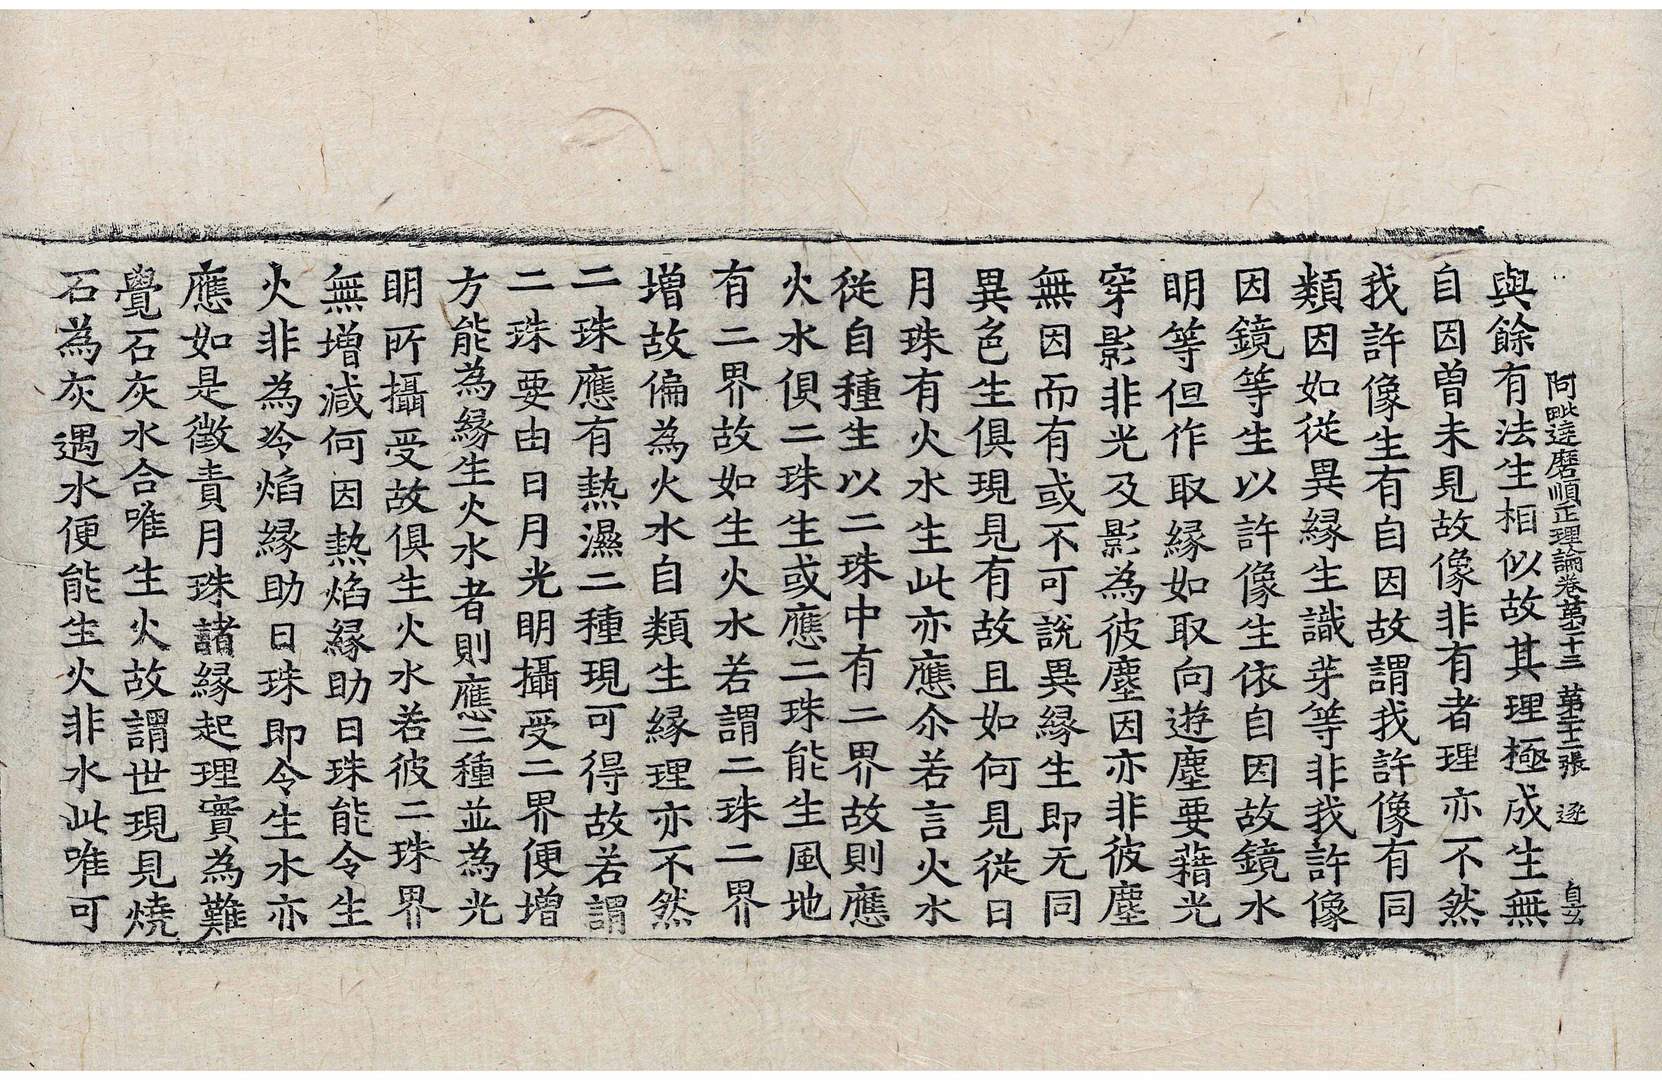 阿毗達磨順正理論卷第二十三 第二十二張 逐
與餘有法生相似故其理極成生無
自因曾未見故像非有者理亦不然
我許像生有自因故謂我許像有同
類因如從異縁生識芽等非我許像
因鏡等生以許像生依自因故鏡水
明等但作取縁如取向遊塵要藉光
穿影非光及影為彼塵因亦非彼塵
無因而有或不可說異縁生即无同
異色生俱現見有故且如何見從日
月珠有火水生此亦應尒若言火水
從自種生以二珠中有二界故則應
火水俱二珠生或應二珠能生風地
有二界故如生火水若謂二珠二界
增故偏為火水自類生縁理亦不然
二珠應有熱濕二種現可得故若謂
二珠要由日月光明攝受二界便增
方能為縁生火水者則應三種並為光
明所攝受故俱生火水若彼二珠界
無增減何因熱焰縁助日珠能令生
火非為冷焰縁助日珠即令生水亦
應如是徵責月珠諸縁起理實為難
覺石灰水合唯生火故謂世現見燒
石為灰遇水便能生火非水此唯可